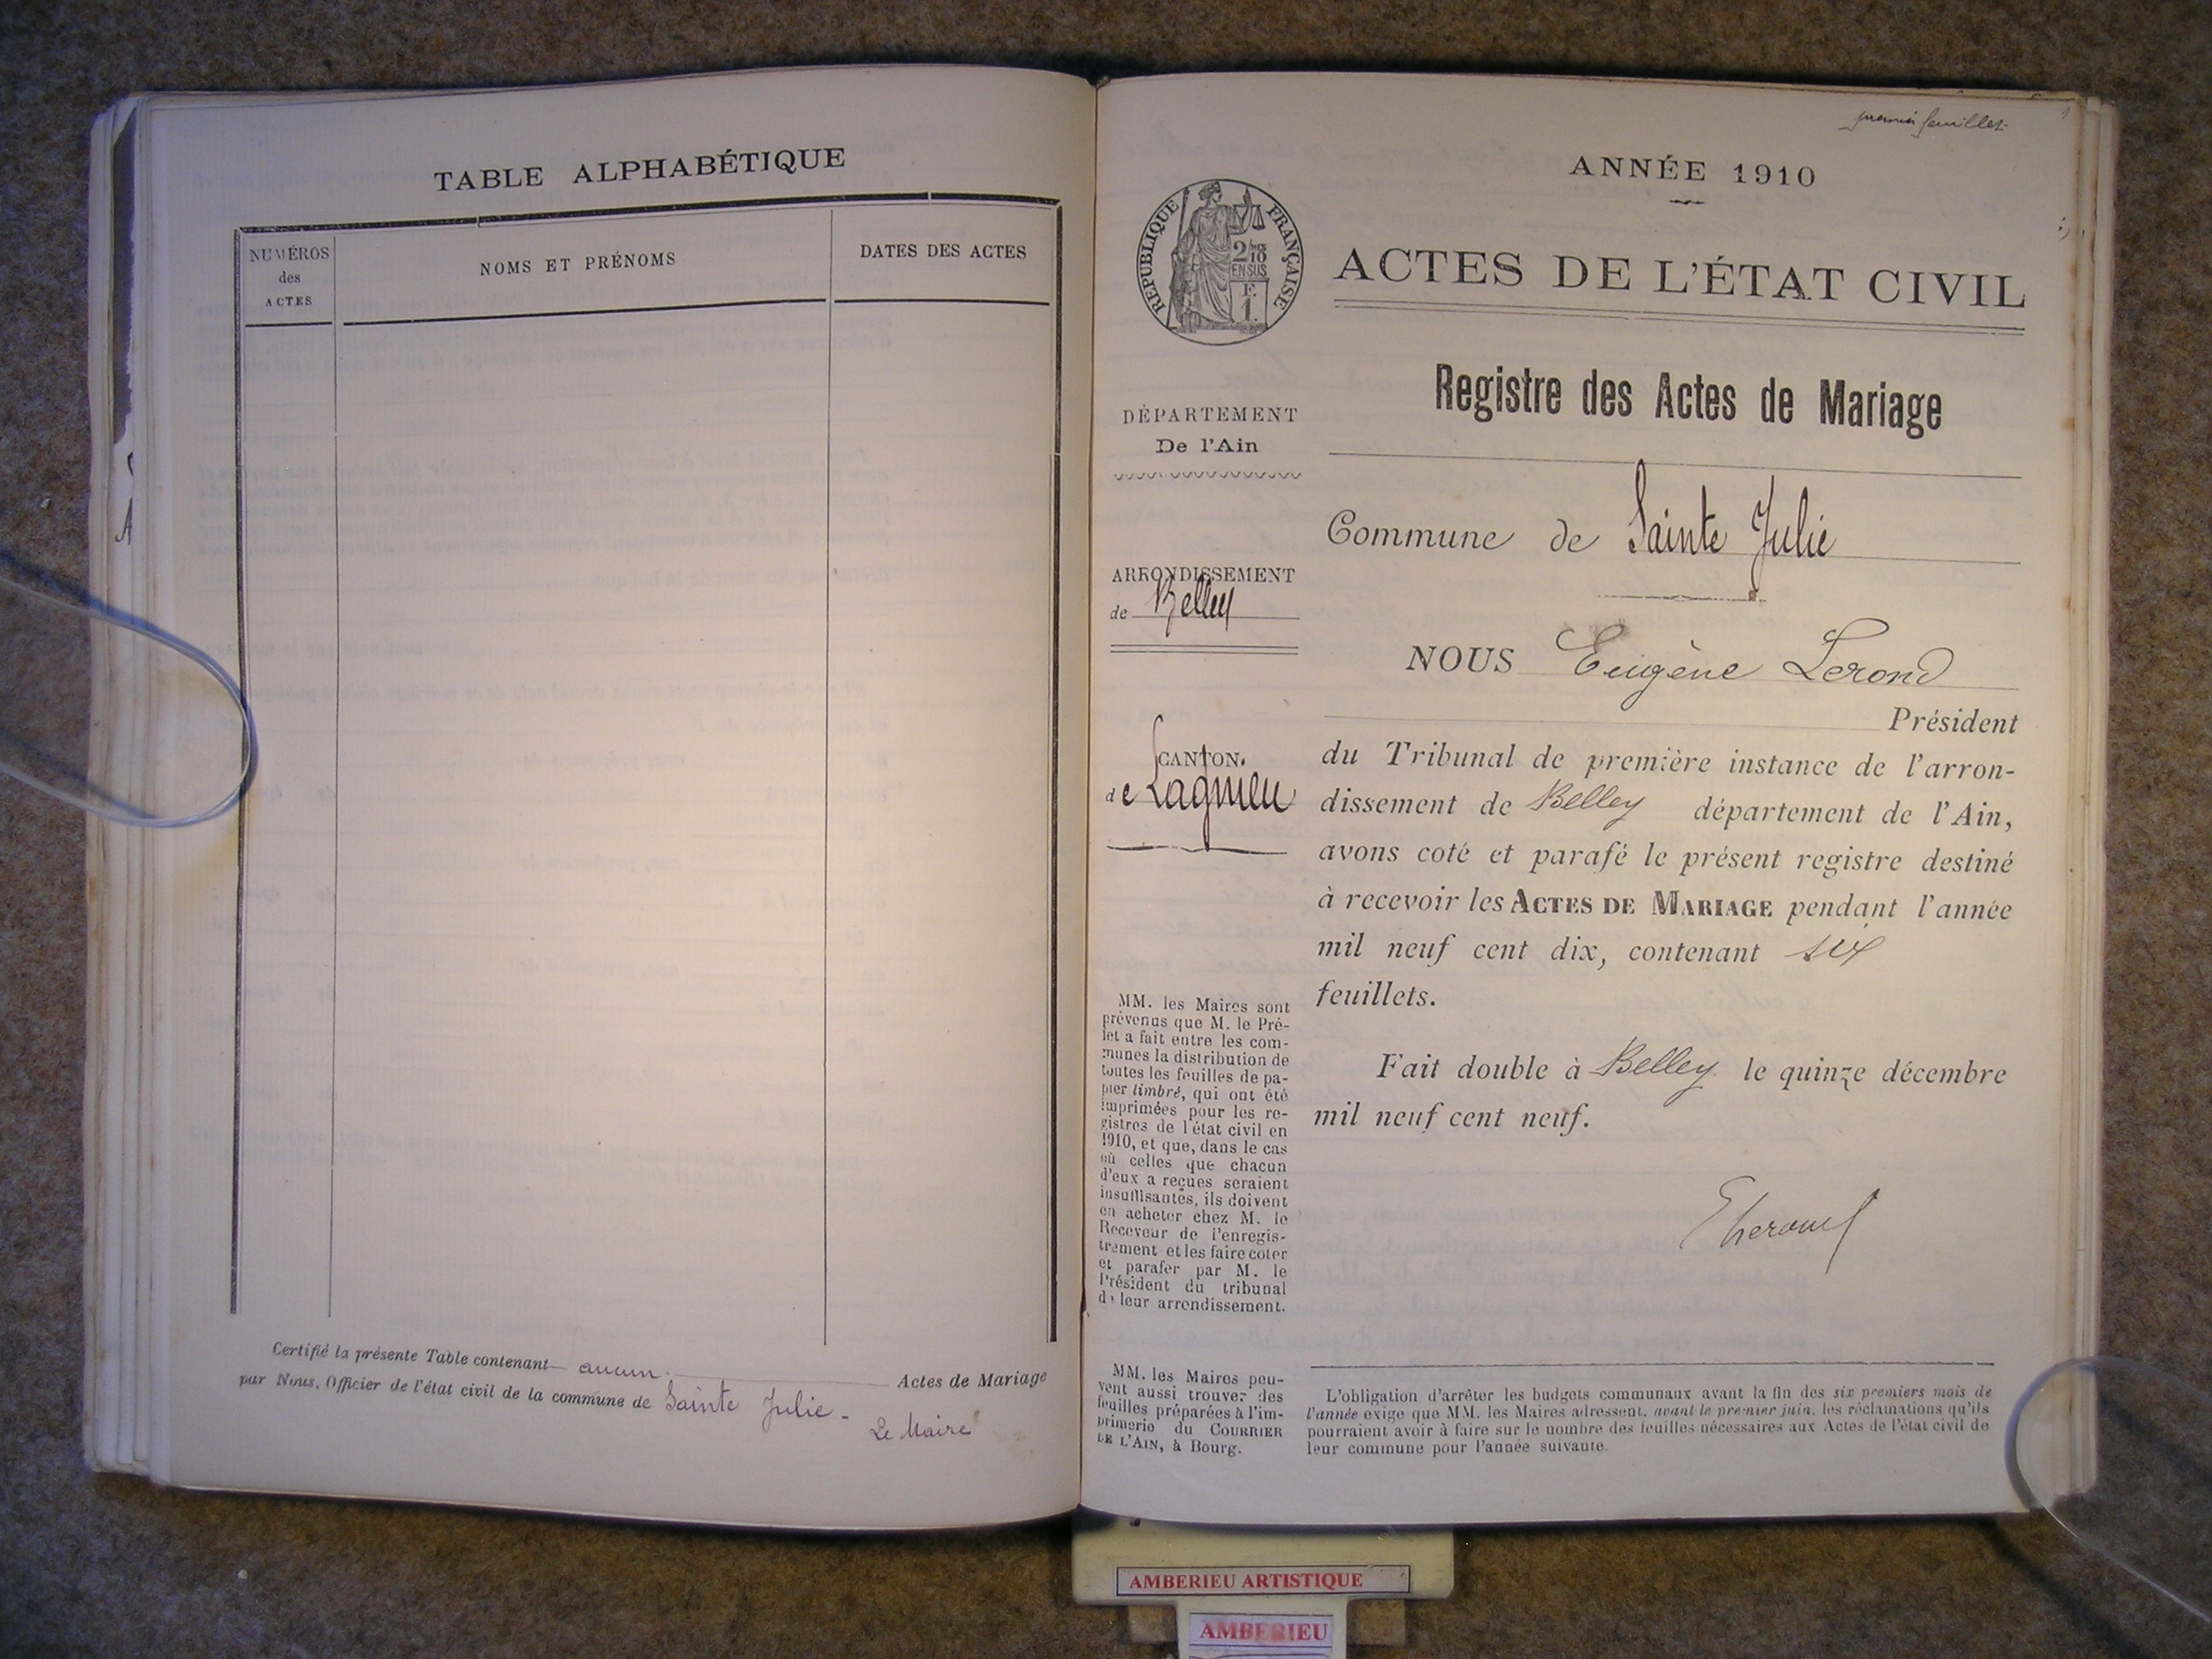 TABLE ALPHABÉTIQUE
NUMÉROS
des
ACTES
NOMS ET PRÉNOMS
DATES DES ACTES
Certifié la présente Table contenant aucun Actes de Mariage
par Nous, Officier de l'état civil de la commune de Sainte Julie -
Le Maire
premier feuillet
ANNÉE 1910
RÉPUBLIQUE FRANÇAISE
2/10
EN SUS
F.
1.
ACTES DE L'ÉTAT CIVIL
Registre des Actes de Mariage
DÉPARTEMENT
De l'Ain
ARRONDISSEMENT
de Belley
CANTON
de Lagnieu
MM. les Maires sont
prévenus que M. le Pré-
fet a fait entre les com-
munes la distribution de
toutes les feuilles de pa-
pier timbré, qui ont été
imprimées pour les re-
gistres de l'état civil en
1910, et que, dans le cas
où celles que chacun
d'eux a reçues seraient
insuffisantes, ils doivent
en acheter chez M. le
Receveur de l'enregis-
trement et les faire coter
et parafer par M. le
Président du tribunal
de leur arrondissement.
MM. les Maires peu-
vent aussi trouver des
feuilles préparées à l'im-
primerie du COURRIER
DE L'AIN, à Bourg.
Commune de Sainte Julie
NOUS Eugène Lerond
Président
du Tribunal de première instance de l'arron-
dissement de Belley département de l'Ain,
avons coté et parafé le présent registre destiné
à recevoir les ACTES DE MARIAGE pendant l'année
mil neuf cent dix, contenant six
feuillets.
Fait double à Belley le quinze décembre
mil neuf cent neuf.
L'obligation d'arrêter les budgets communaux avant la fin des six premiers mois de
l'année exige que MM. les Maires adressent, avant le premier juin, les réclamations qu'ils
pourraient avoir à faire sur le nombre des feuilles nécessaires aux Actes de l'état civil de
leur commune pour l'année suivante.
AMBERIEU ARTISTIQUE
AMBERIEU